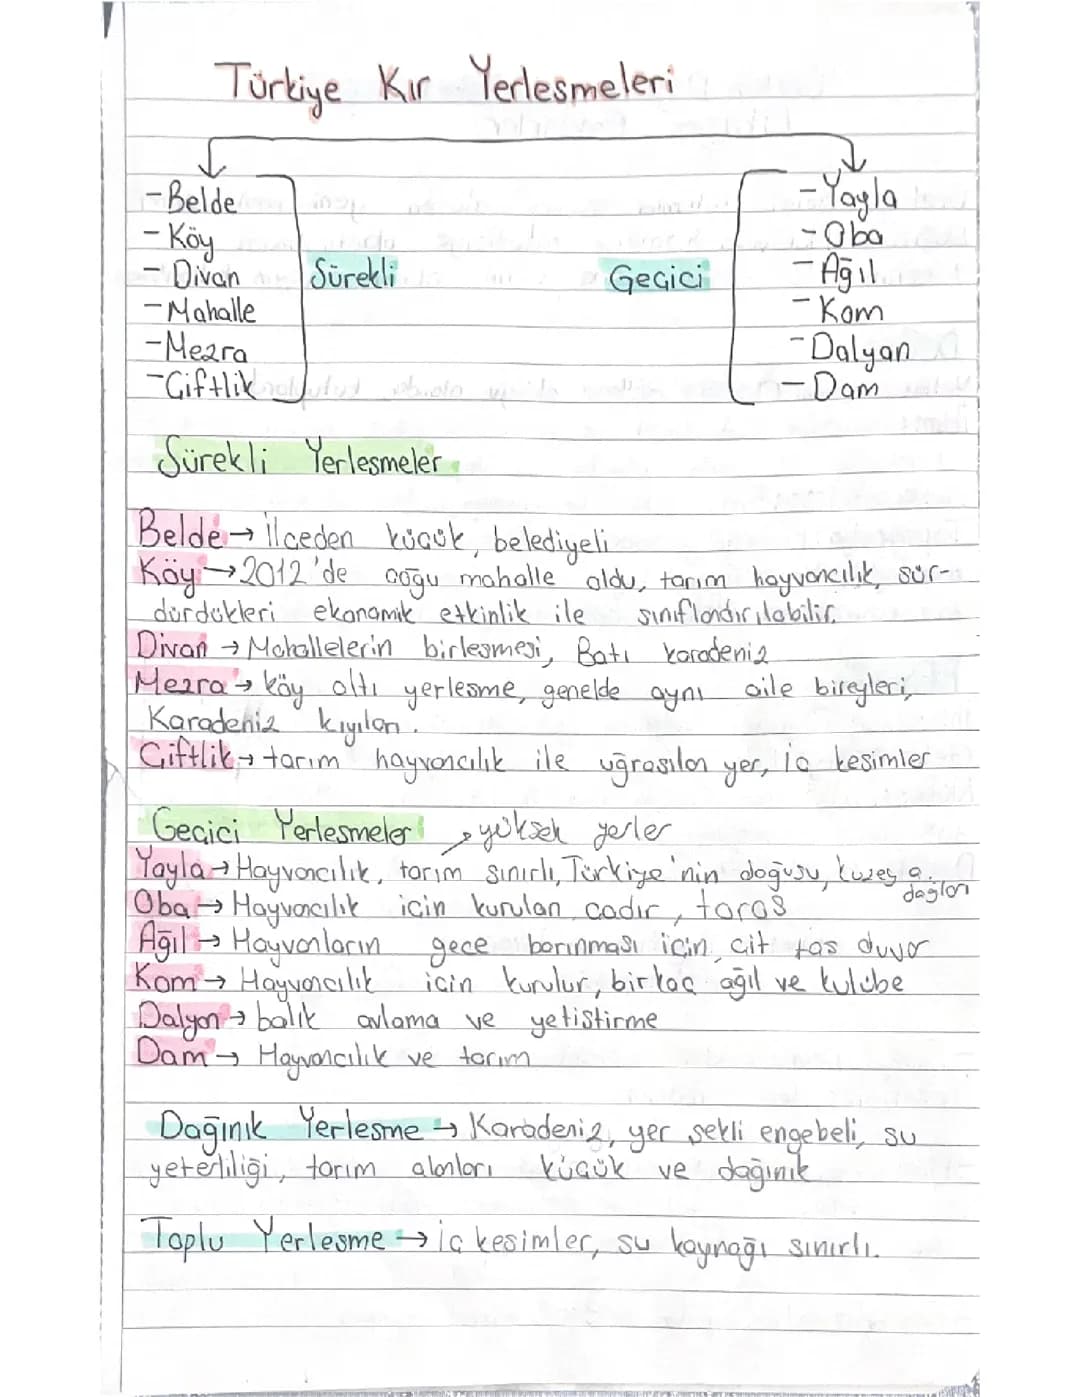 Türkiye Kır Yerlesmeleri
-Belde
-Köy
-Divan
-Mahalle
-Mezra
-Çiftlik
Sürekli
Geçici
-Yayla
-Oba
-Ağıl
-Kom
-Dalyan
-Dam
Sürekli Yerlesmeler
Belde→ ilçeden küçük, belediyeli
Köy→2012'de çoğu mahalle oldu, tarım hayvancılık, sür-
dürdükleri ekonomik etkinlik ile sınıflandırılabilir.
Divan → Mahallelerin birlesmesi, Batı karadeniz
Mezra→ köy altı yerlesme, genelde aynı aile bireyleri,
Karadeniz kıyıları.
Çiftlik→ tarım hayvancılık ile uğrasılan yer, iç kesimler
Geçici Yerlesmeler → yüksek yerler
Yayla→ Hayvancılık, tarım sınırlı, Türkiye'nin doğusu, kuzey a.
dagları
Oba→ Hayvancılık için kurulan çadır, toros
Ağıl→ Hayvanların gece barınması için çit tas duvar
Kom→ Hayvancılık için kurulur, birkaç ağıl ve kulübe
Dalyan→ balık avlama ve yetistirme
Dam→ Hayvancılık ve tarım
Dağınık Yerlesme → Karadeniz, yer sekli engebeli, su
yeterliliği, tarım alanları küçük ve dağınık
Toplu Yerlesme → iç kesimler, su kaynağı sınırlı.